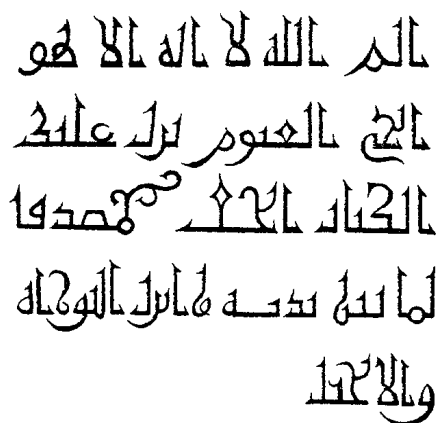 الم الله لا اله الا هو
الحي القيوم نزل عليك
الكتاب بالحق مصدقا
لما بين يديه وانزل التورىة
والانجيل